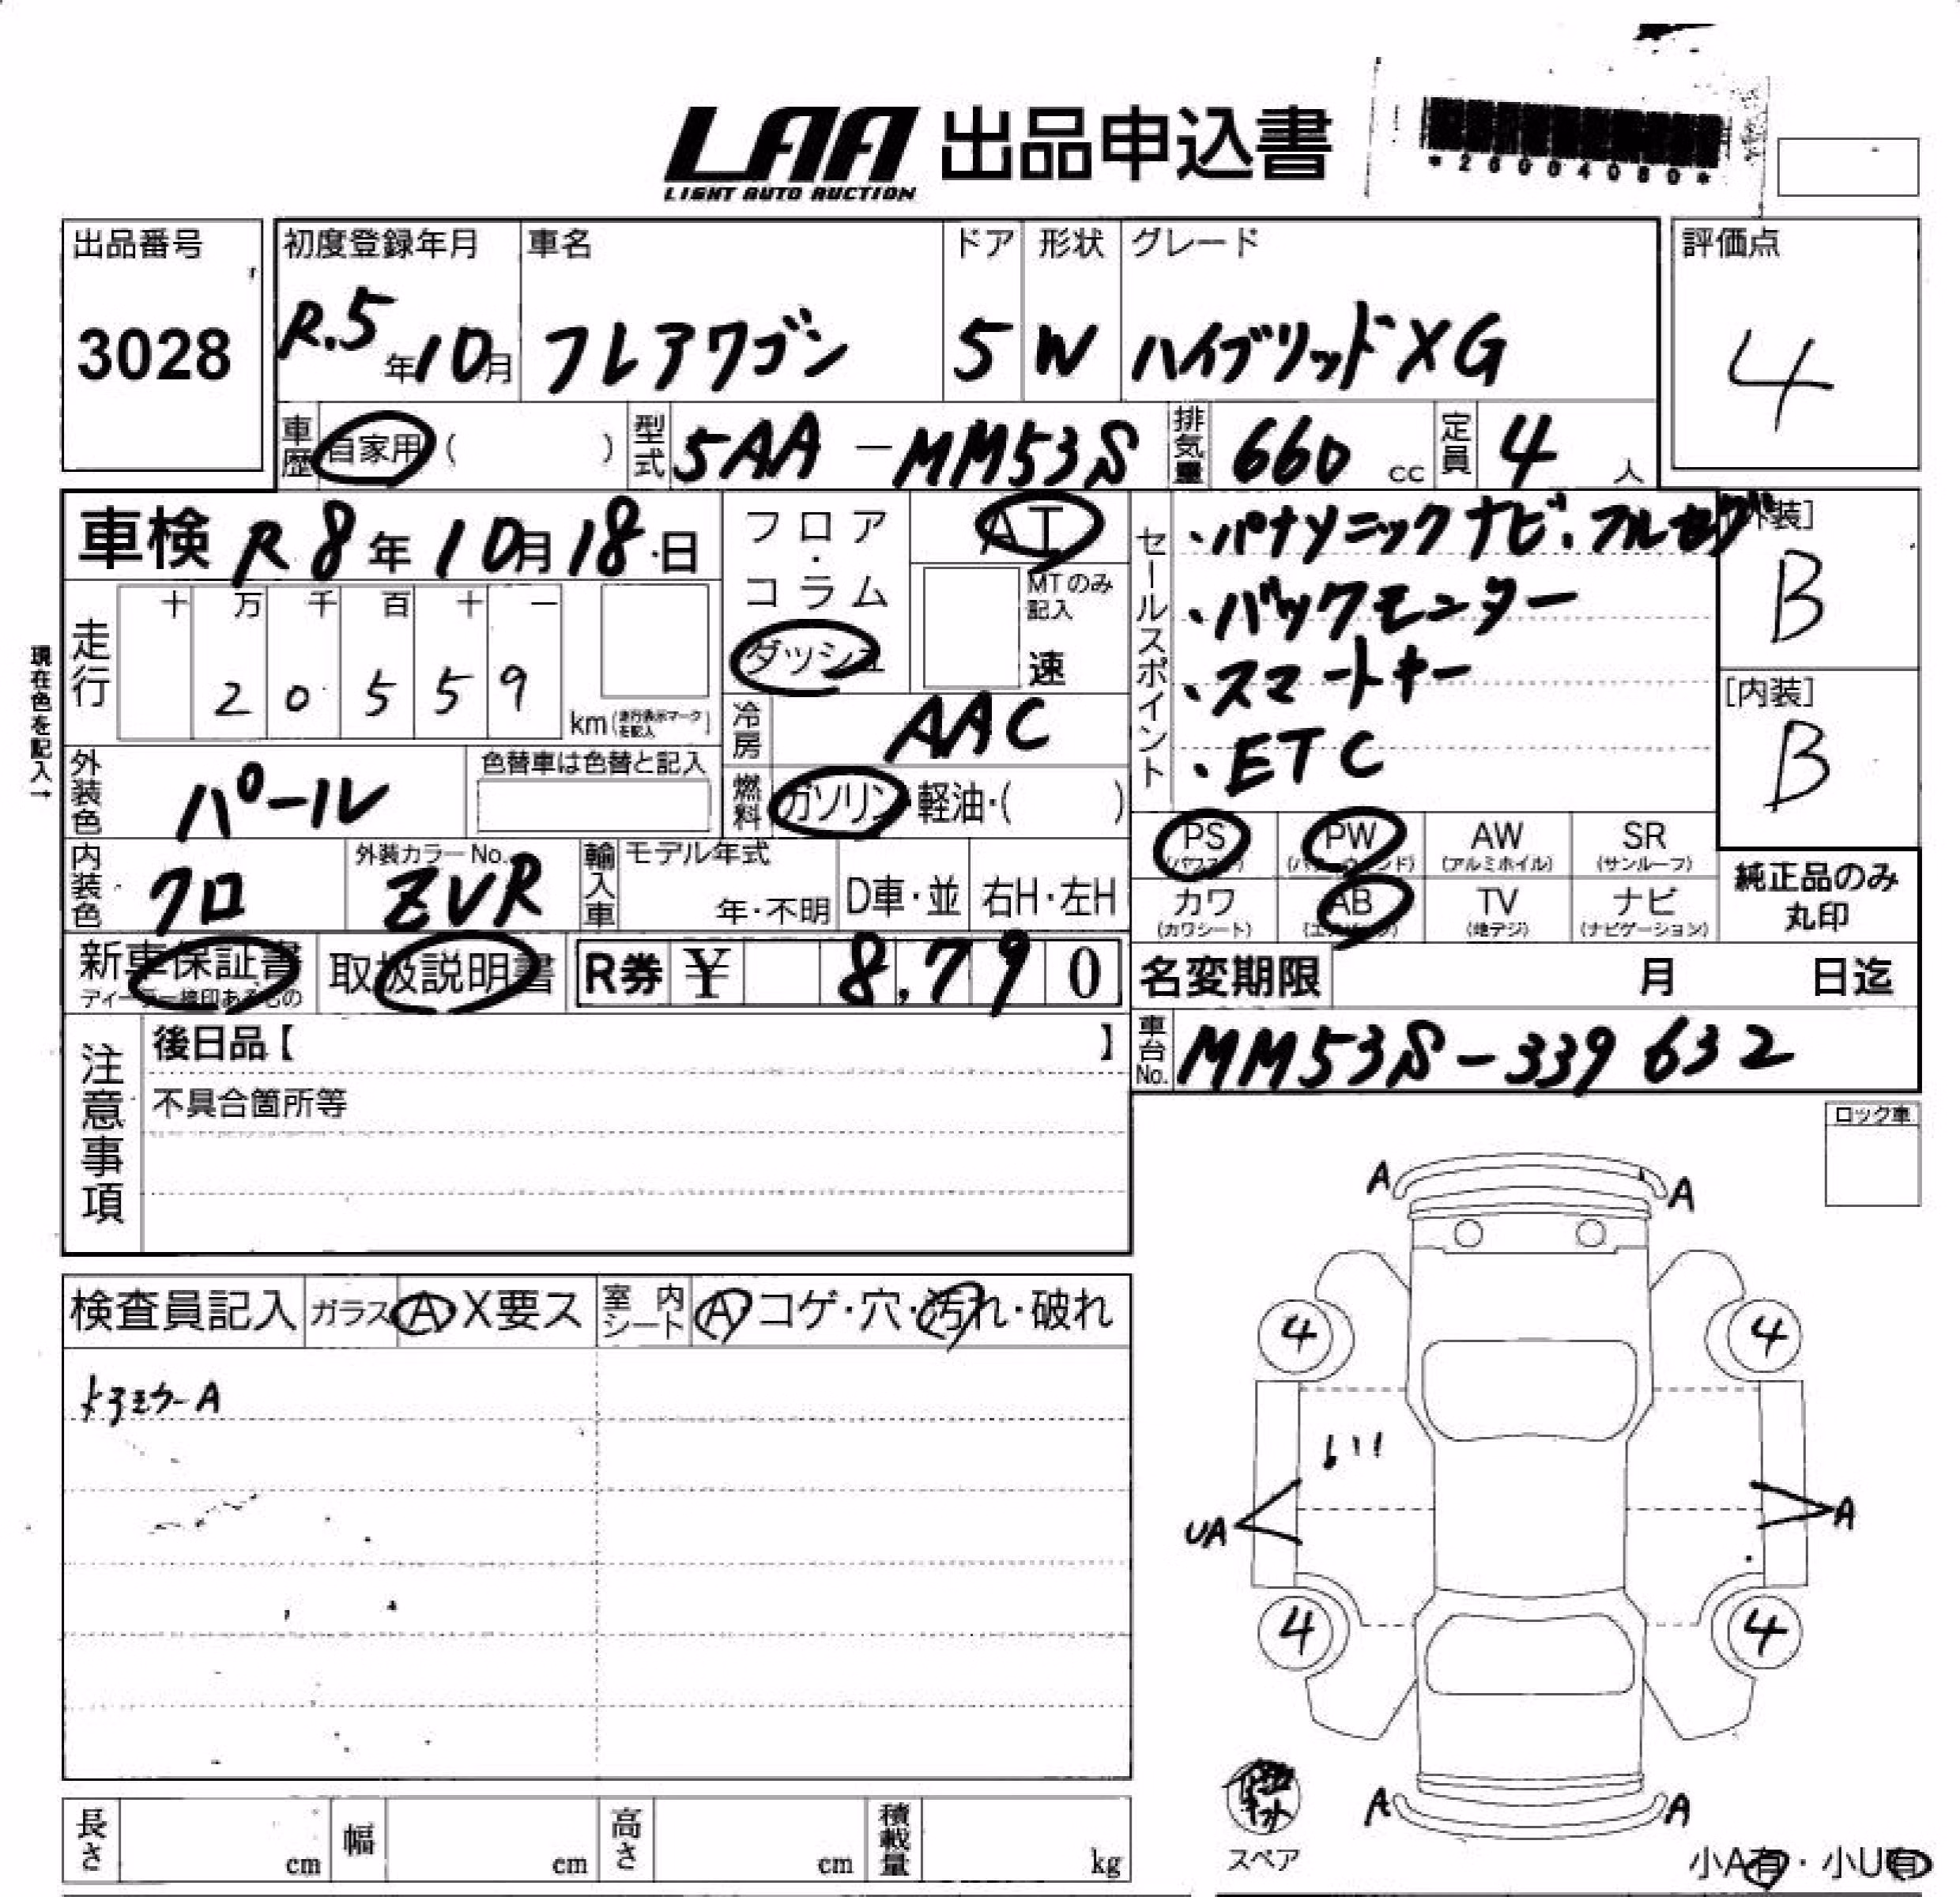 LAA 出品申込書
LIGHT AUTO AUCTION
*26004080*
出品番号 初度登録年月 車名 ドア 形状 グレード 評価点
3028 R.5年10月 フレアワゴン 5 W ハイブリッドXG 4
車歴 自家用 ( ) 型式 5AA-MM53S 排気量 660 cc 定員 4 人
車検 R8年10月18日
フロア・コラム
ダッシュ
AT
MTのみ記入
速
セールスポイント
・パナソニックナビ.フルセグ
・バックモニター
・スマートキー
・ETC
[外装]
B
[内装]
B
現在色を記入→
走行 十 万 千 百 十 一
2 0 5 5 9 km (走行表示マークを記入)
冷房 AAC
外装色 パール 色替車は色替と記入
燃料 ガソリン・軽油・( )
PS PW AW SR
(パワステ) (パワーウィンド) (アルミホイル) (サンルーフ)
カワ AB TV ナビ
(カワシート) (エアバック) (地デジ) (ナビゲーション)
純正品のみ
丸印
内装色 クロ 外装カラーNo. ZVR 輸入車 モデル年式 年・不明 D車・並 右H・左H
新車保証書 取扱説明書 R券 ¥ 8,790 名変期限 月 日迄
ディーラー検印あるもの
車台No. MM53S-339632
注意事項
後日品【 】
不具合箇所等
ロック車
検査員記入 ガラス A・X要ス 室内シート A・コゲ・穴・汚れ・破れ
ドアミラーA
A A
4 4
UA A
4 4
A A
スペア
長さ cm 幅 cm 高さ cm 積載量 kg
小A有・小U有